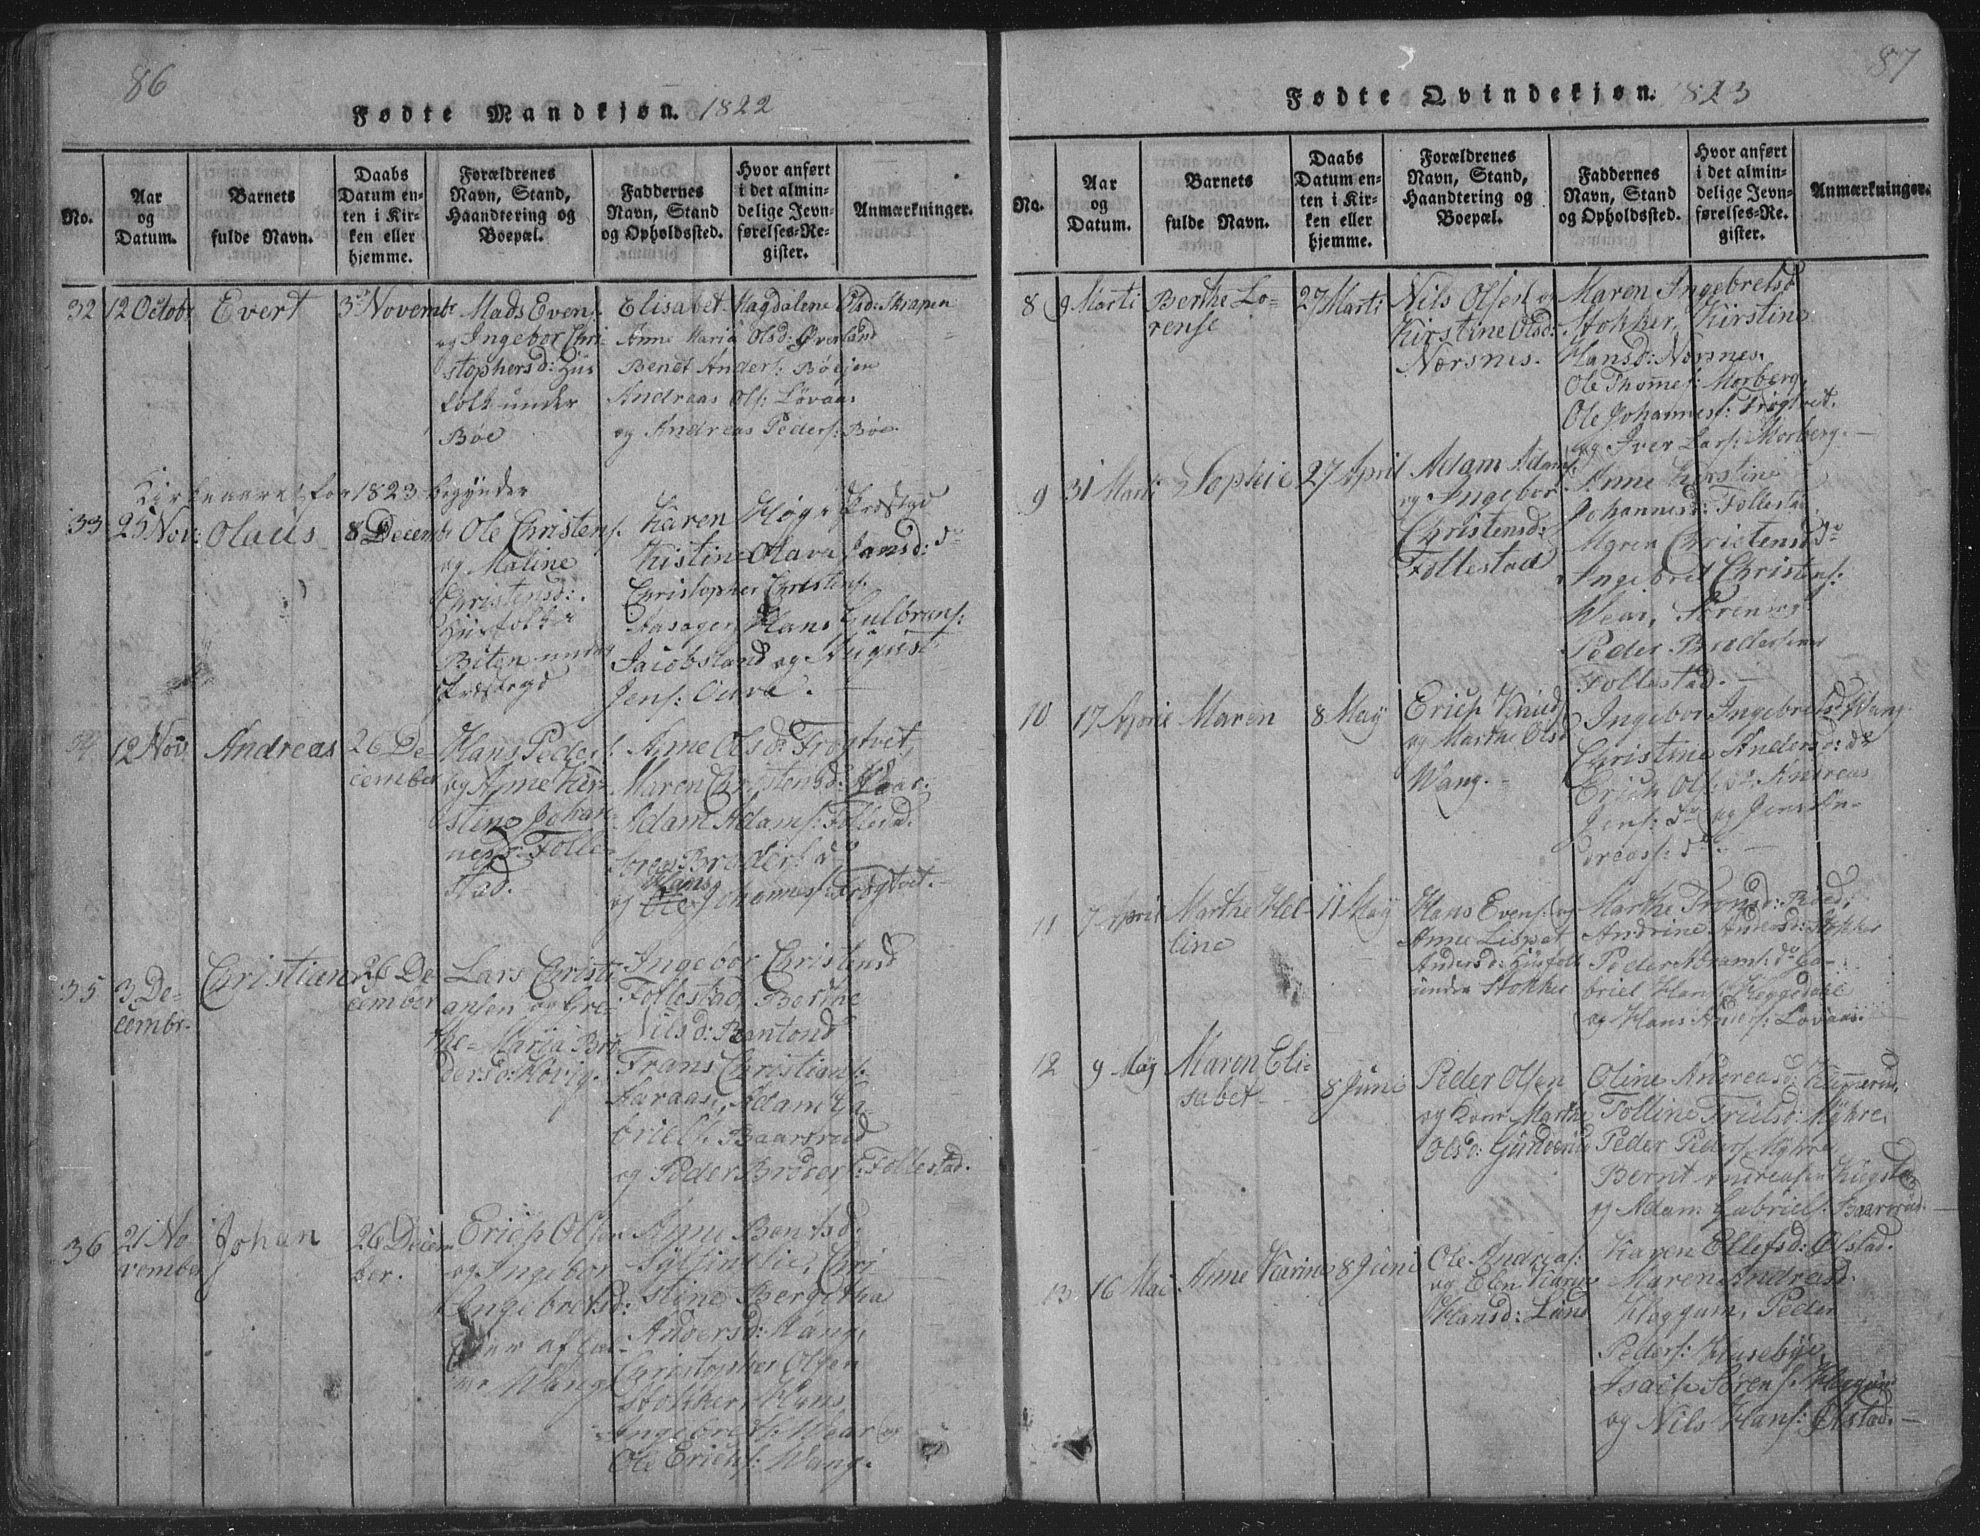 86
Fødte Mandkjøn. 1822
No.
Aar
og
Datum.
Barnets
fulde Navn.
Daabs
Datum en-
ten i Kir-
ken eller
hjemme.
Forældrenes
Navn, Stand,
Haandtering og
Boepæl.
Faddernes
Navn, Stand
og Opholdssted.
Hvor anført
i det almin-
delige Jevn-
førelses-Re-
gister.
Anmærkninger.
32 12 Octobr Evert 3d Novembr
Mads Evens:
og Ingebor Chri-
stophersd: Huus
folk under
Bøe
Elisabet Magdalene Plsd: Skapen
Anne Maria Olsd: Øverland
Bendt Anders: Bøejen
Andraas Ols: Løvaas
og Andreas Peders: Bøe
Kirkeaaret for 1823 begynder
33 25 Nov: Olaus 8 Decembr
Ole Christens:
og Maline
Christensd:
Huusfolk
Biten under
Præstegd
Karen Høg Præstgd
Kistine Olava Jansd: do
Christopher Christens:
Aasager, Hans Gulbrans:
Jacobsland og August
Jens:
34 12 Nov: Andreas 26 De-
cember
Hans Peders:
og Anne Kir-
stene Johan-
nesd: Folle-
stad.
Anne Olsd: Frøgtvet,
Maren Christensd: Waar.
Adam Adams: Follestad.
Broders: do
Hans
og Ole Johannes: Frøgtvet.
35 3 De-
cembr. Christian 26 De-
cember
Lars Christi-
ansen og Gre-
the Maria Bro-
dersd: Høvig.
Ingebor Christensd
Follestad Berthe
Nilsd: Ramtond
Frans Christians:
Aaraas, Adam Ga-
briels: Baarsrud
og Peder Broders: Follestad.
36 21 No-
vember Johan 26 Decem-
ber.
Erich Olsen
og Ingebor
Ingebretsd:
Wang
Anne Bentsd:
Gylsinlie, Chri-
stine Bergitha
Andersd: Wang,
Christopher Olsen
Stokker, Hans
Ingebreths: Wear og
Ole Erichs: Wang.
87
Fødte Qvindekjøn. 1823
No.
Aar
og
Datum.
Barnets
fulde Navn.
Daabs
Datum en-
ten i Kir-
ken eller
hjemme.
Forældrenes
Navn, Stand,
Haandtering og
Boepæl.
Faddernes
Navn, Stand
og Opholdssted.
Hvor anført
i det almin-
delige Jevn-
førelses-Re-
gister.
Anmærkninger.
8 9 Marti Berthe Lo-
rense 27 Marti
Nils Olsen og
Kirstine Olsd:
Nærsnes.
Maren Ingebretsd
Stokker, Kirstine
Hansd: Nærsnes.
Ole Thomes: Morberg,
Ole Johannes: Frøgtvet.
og Iver Lars: Morberg.
9 31 Marti Sophie 27 April
Adam Adams:
og Ingebor
Christensd:
Follestad
Anne Kirstine
Johannesd: Follestad.
Maren Christensd do
Ingebret Christens:
Wear, Søren og
Peder Broderssen
Follestad.
10 17 Aprile Maren 8 May
Erich Knuds
og Marthe Olsd
Wang.
Ingebor Ingebretsd Wang
Christine Andersd: do
Erich Ols: do Andreas
Jens: do og Jens An-
dreas: do
11 7 April Marthe Hel-
line 11 May
Hans Evens: og
Anne Lisbet
Andersd: Huusfolk
under Stokker
Marthe Tronsd: Røed,
Andrine Andersd: Stokker
Peder Abrams: do Ga-
briel Hans: Heggedahl
og Hans Anders: Løvaas.
12 9 May Maren Eli-
sabet 8 Juni
Peder Olsen
og Kone Marthe
Olsd: Gunderud
Oline Andreasd: Kimmerud,
Folline Frielsd: Myhre,
Peder Peders: Myhre
Bernt Andreasen Hugstad
og Adam Gabriels: Baarsrud.
13 16 Mai Anne Karine 8 Juni
Ole Andreas:
og Elen Karine
Hansd: Lund
Karen Ellefsd: Ølstad.
Maren Andreasd.
Heggum, Peder
Peders: Husebye,
Isach Sørens: Heggum
og Nils Hans: Ølstad.